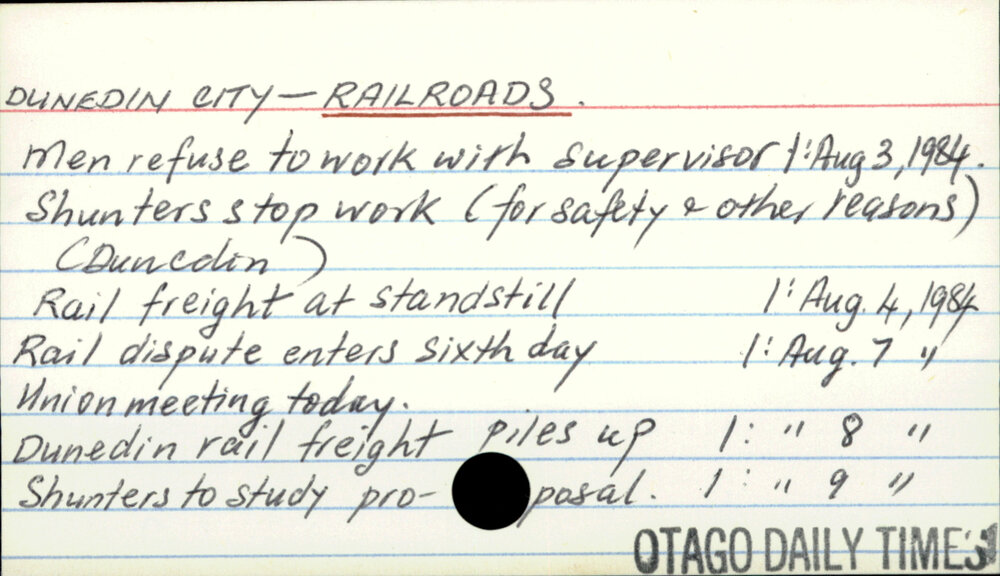 DUNEDIN CITY — RAILROADS.
Men refuse to work with supervisor 1: Aug 3, 1984.
Shunters stop work (for safety & other reasons)
(Dunedin)
Rail freight at standstill 1: Aug. 4, 1984
Rail dispute enters sixth day 1: Aug. 7 "
Union meeting today.
Dunedin rail freight piles up 1: " 8 "
Shunters to study pro- posal. 1: " 9 "
OTAGO DAILY TIMES